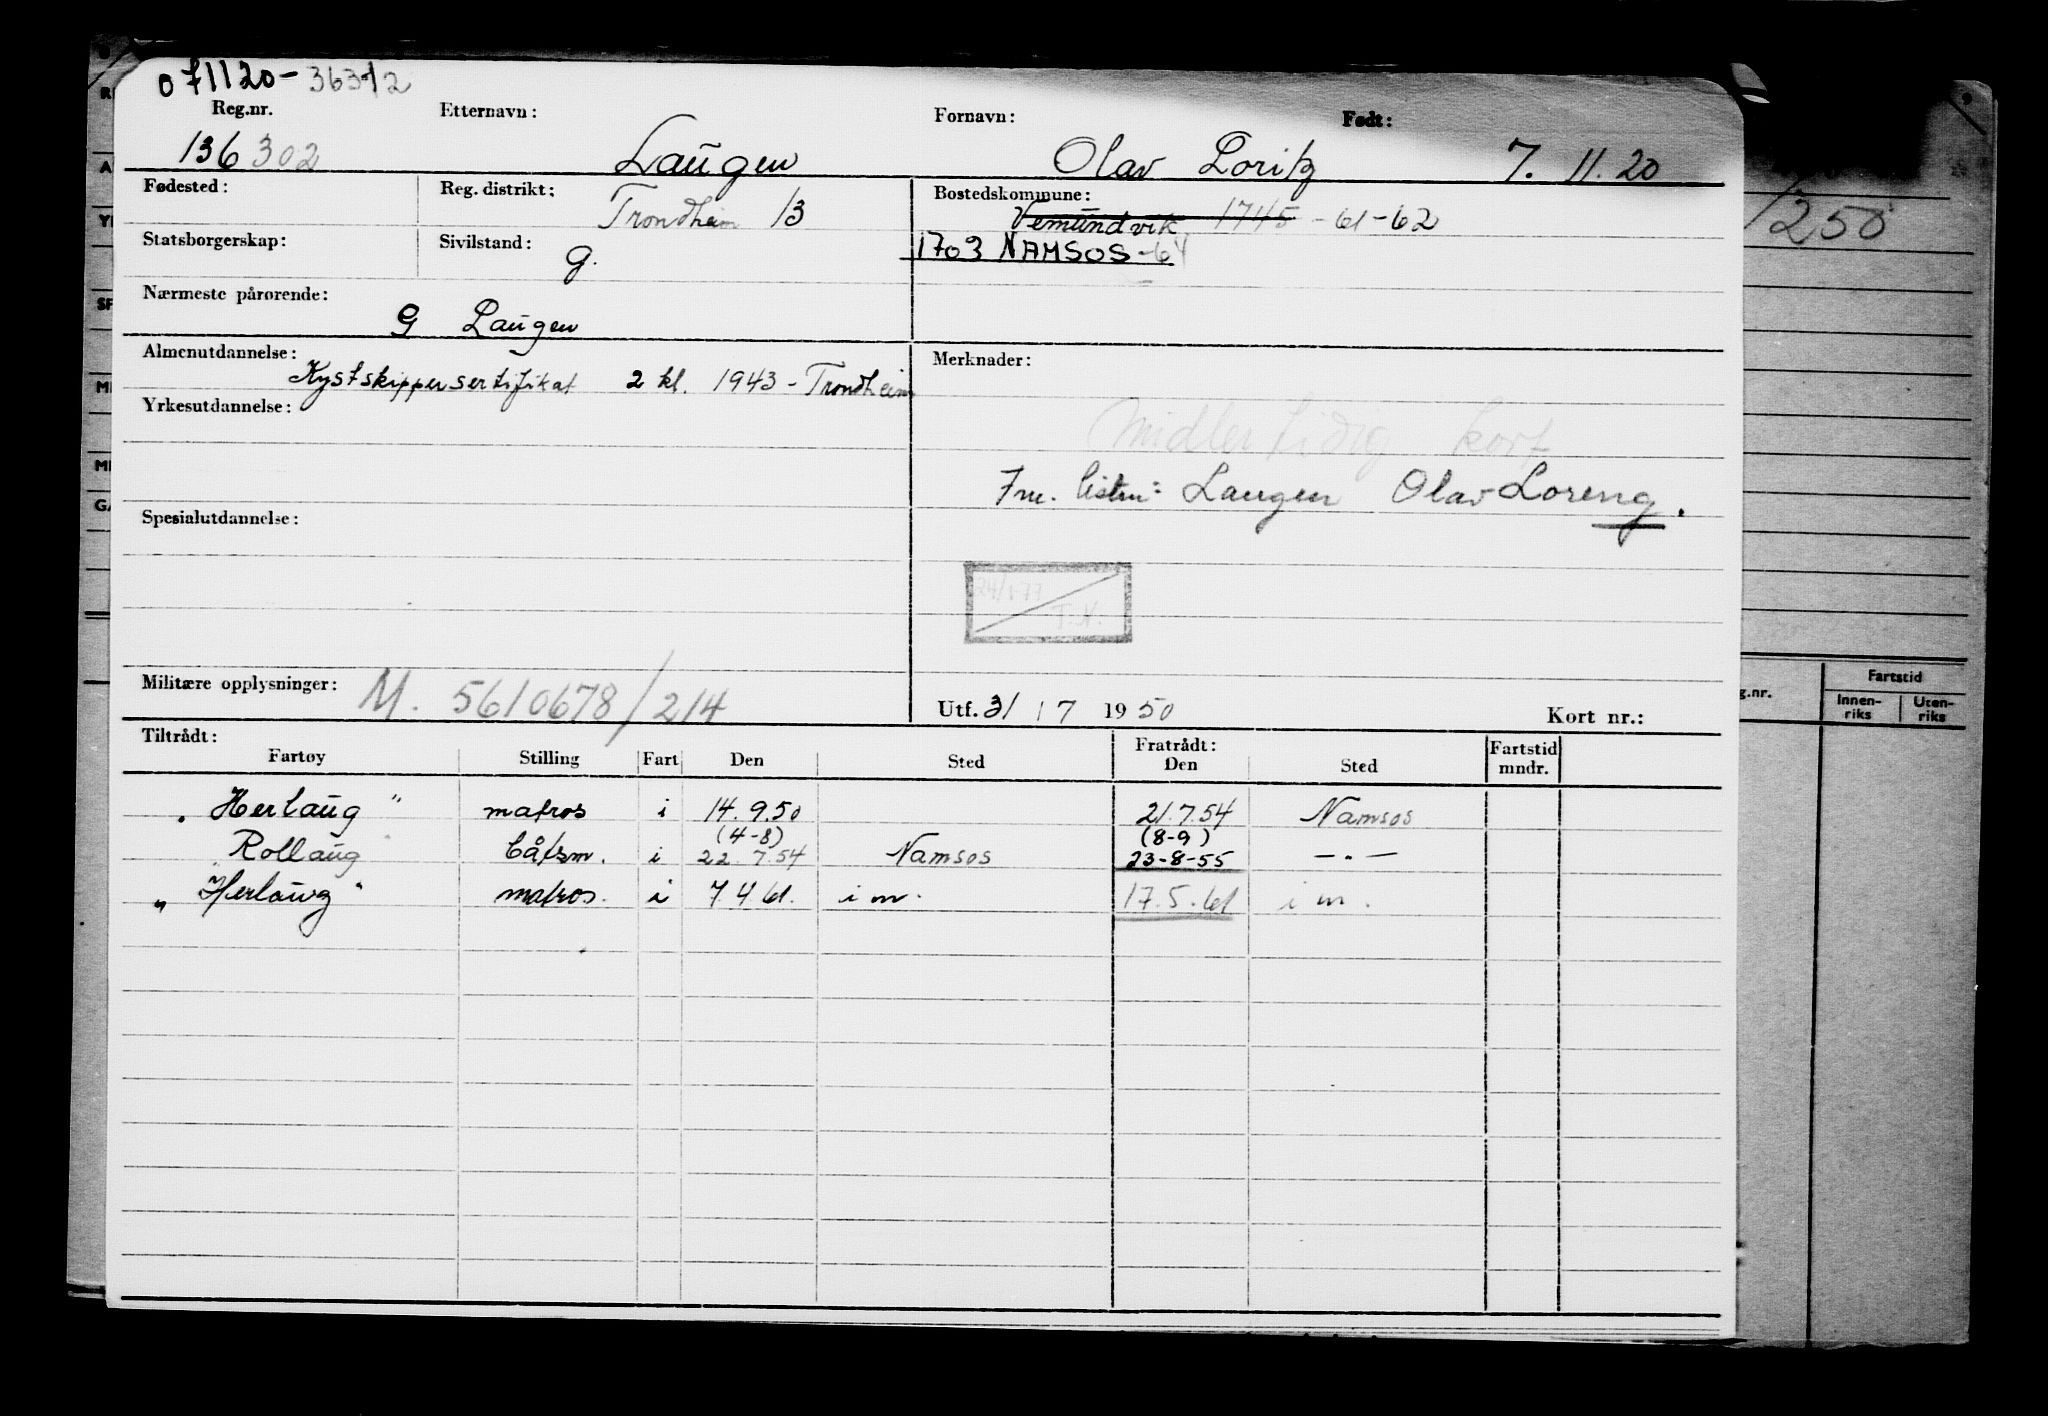 071120-36312
Reg.nr. Etternavn: Fornavn: Født:
136302 Laugen Olav Loritz 7. 11. 20
Fødested: Reg. distrikt: Bostedskommune:
Trondheim 13 Vemundvik 1745 -61-62
Statsborgerskap: Sivilstand: 1703 NAMSOS -64
g.
Nærmeste pårørende:
G Laugen
Almenutdannelse: Merknader:
Kystskippersertifikat 2 kl. 1943 - Trondheim
Yrkesutdannelse:
Midlertidig kort
Laugen Olav Loreng.
Spesialutdannelse:
24/1-77
T.N.
Militære opplysninger: M. 5610678/214
Utf. 31 / 7 1950 Kort nr.:
Tiltrådt: Fratrådt: Fartstid
Fartøy Stilling Fart Den Sted Den Sted mndr.
"Herlaug" matros i 14.9.50 21.7.54 Namsos
(4-8) (8-9)
Rollaug båtsm. i 22.7.54 Namsos 23-8-55 —"—
"Herlaug" matros. i 7.4.61. i m. 17.5.61 i m.
1250
g.nr.
Fartstid
Innen-riks Uten-riks